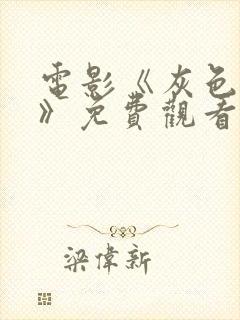 電影《灰色
》免費觀看
梁偉新